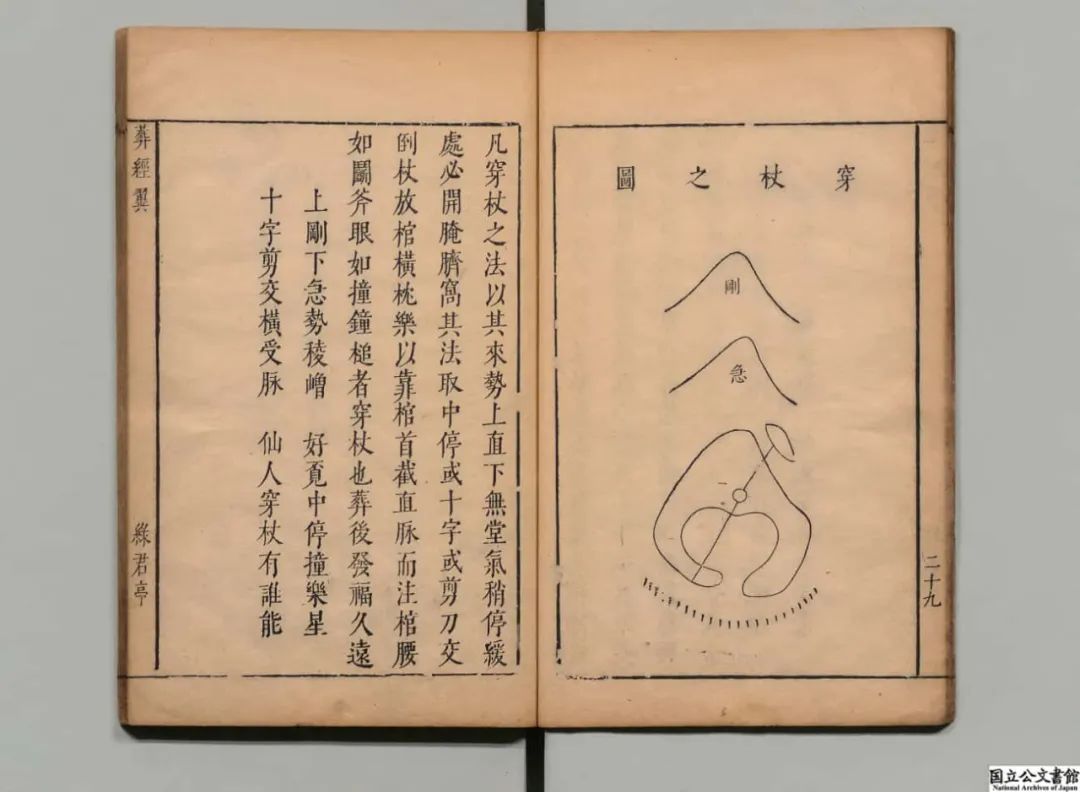 穿杖之圖
剛
急
二十九
凡穿杖之法以其來勢上直下無堂氣稍停緩
處必開腌臍窩其法取中停或十字或剪刀交
倒杖放棺橫枕樂以靠棺首截直脉而注棺腰
如圖斧眼如撞鐘槌者穿杖也葬後發福久遠
上剛下急勢稜嶒 好覓中停撞樂星
十字剪交橫受脉 仙人穿杖有誰能
葬經翼
綠君亭
国立公文書館
National Archives of Japan